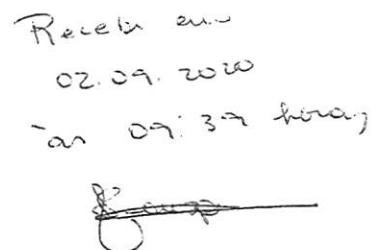 Recebi em
02.09.2020
às 09:37 horas